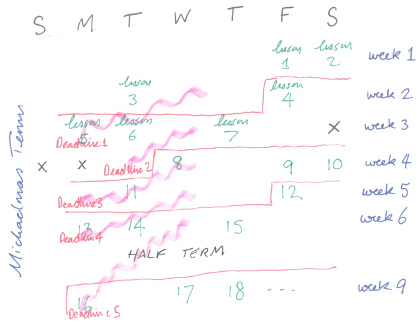 S M T W T F S
lesson 1 lesson 2 week 1
lesson 3 lesson 4 week 2
lesson 5 lesson 6 lesson 7 X week 3
Deadline 1
X X Deadline 2 8 9 10 week 4
Deadline 3 11 12 week 5
13 14 15 week 6
Deadline 4
HALF TERM
16 17 18 --- week 9
Deadline 5
Michaelmas Term